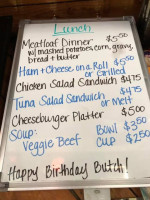 Lunch
Meatloaf Dinner $5.50
w/ mashed potatoes, corn, gravy,
bread + butter
Ham + Cheese on a Roll $5.50
or Grilled
Chicken Salad Sandwich $4.75
Tuna Salad Sandwich $4.75
or Melt
Cheeseburger Platter $5.00
Soup: Bowl $3.50
Veggie Beef Cup $2.50
Happy Birthday Butch!